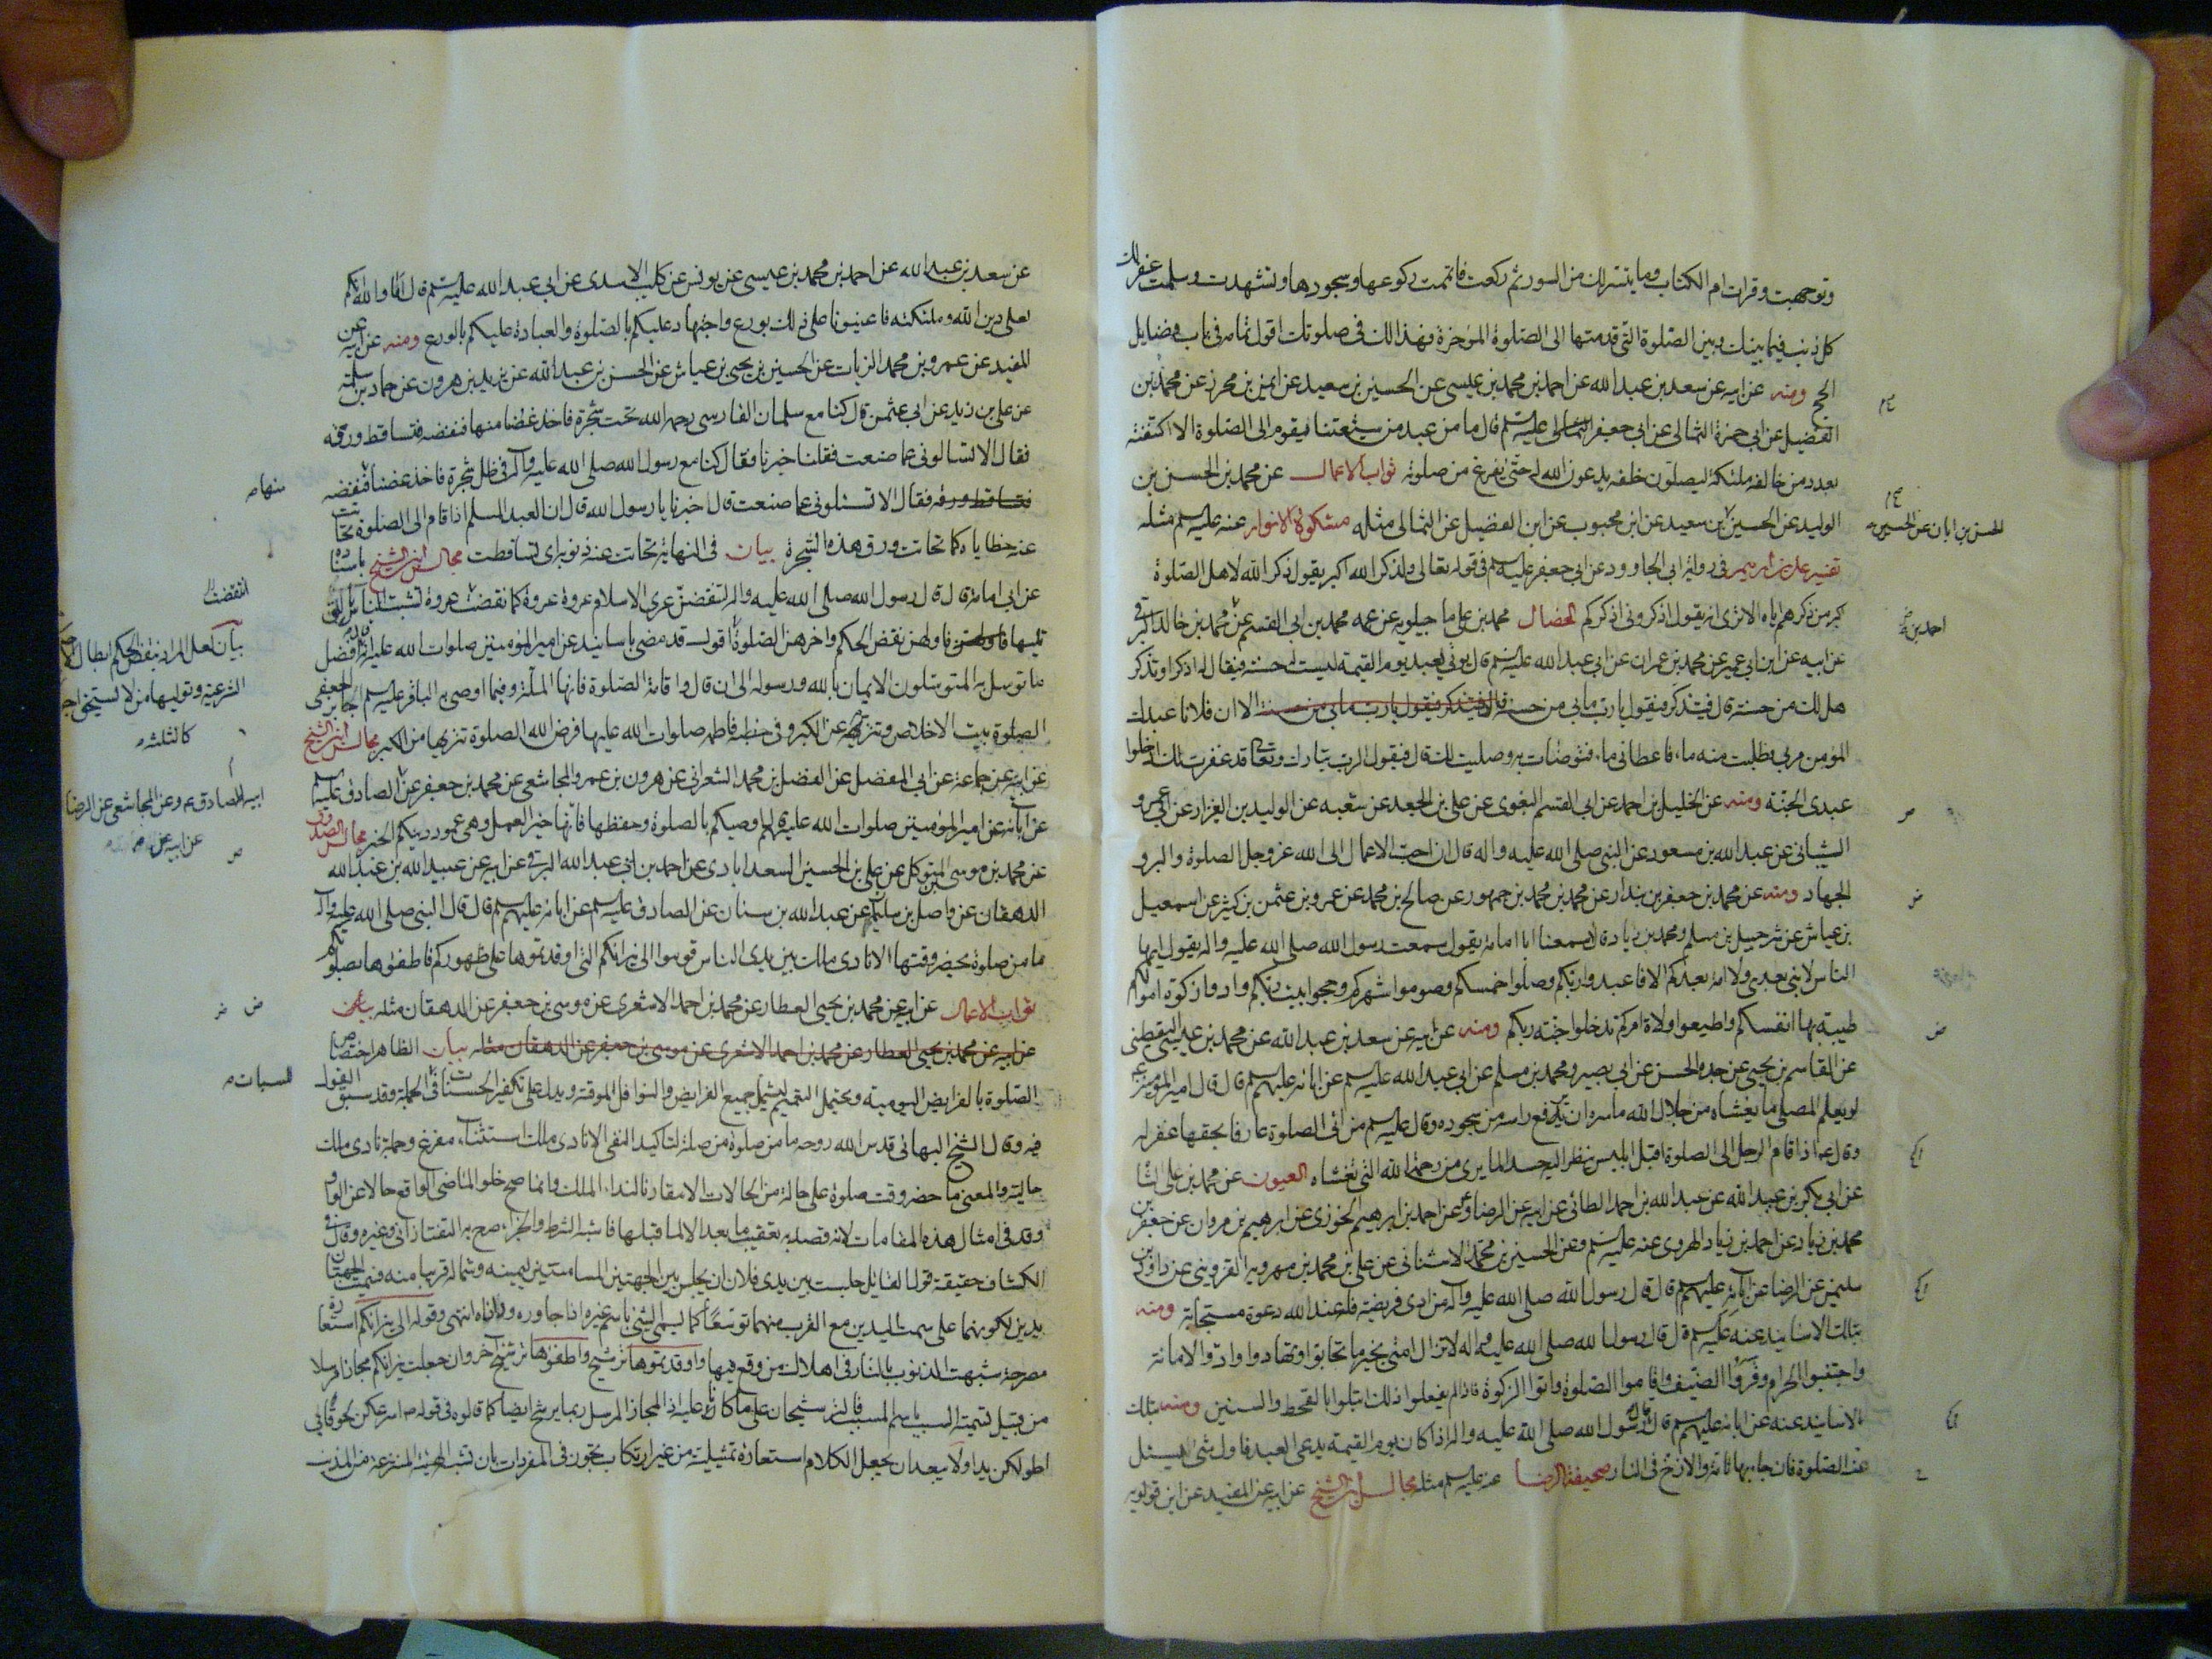 وتوجهت وقرات ام الكتاب وما تيسر لك من السور ثم ركعت فاتممت ركوعها وسجودها وتشهدت وسلمت غفر لك
كل ذنب فيما بينك وبين الصلوة التي قدمتها الى الصلوة المؤخرة فهذا لك في صلوتك اقول تمامه في باب فضايل
الحج ومنه عن ابيه عن سعد بن عبد الله عن احمد بن محمد بن عيسى عن الحسين بن سعيد عن ايمن بن محرز عن محمد بن
الفضيل عن ابي حمزة الثمالي عن ابي جعفر عليه السلم قال ما من عبد من شيعتنا يقوم الى الصلوة الا اكتنفته
بعدد من خالفه ملئكة يصلون خلفه يدعون الله له حتى يفرغ من صلوته ثواب الاعمال عن محمد بن الحسن بن
الوليد عن الحسين بن سعيد عن ابن محبوب عن ابن الفضيل عن الثمالي مثله مشكوة الانوار عنه عليه السلم مثله
الحسن بن ابان عن الحسين
تفسير علي بن ابرهيم في رواية ابي الجارود عن ابي جعفر عليه السلم في قوله تعالى ولذكر الله اكبر يقول ذكر الله لاهل الصلوة
اكبر من ذكرهم اياه الا ترى انه يقول اذكروني اذكركم الخصال محمد بن علي ماجيلويه عن عمه محمد بن ابي القسم عن محمد بن خالد البرقي
احمد بن
عن ابيه عن ابن ابي عمير عن محمد بن عمران عن ابي عبد الله عليه السلم قال يؤتى بعبد يوم القيمة ليست له حسنة فيقال له اذكر او تذكر
هل لك من حسنة قال فيتذكر فيقول يا رب مابي من حسنة الا ان فلانا عبدك
المؤمن مر بي فطلبت منه ماء فاعطاني ماء فتوضات به وصليت لك قال فيقول الرب تبارك وتعالى قد غفرت لك ادخلوا
عبدي الجنة ومنه عن الخليل بن احمد عن ابي القسم البغوي عن علي بن الجعد عن شعبه عن الوليد بن العيزار عن ابي عمرو
الشيباني عن عبد الله بن مسعود عن النبي صلى الله عليه واله قال ان احب الاعمال الى الله عز وجل الصلوة والبر و
الجهاد ومنه عن محمد بن جعفر بن بندار عن محمد بن محمد بن جمهور عن صالح بن محمد عن عمرو بن عثمن بن كثير عن اسمعيل
بن عياش عن شرحبيل بن مسلم ومحمد بن زياد قال سمعنا ابا امامة يقول سمعت رسول الله صلى الله عليه واله يقول ايها
الناس لا نبي بعدي ولا امة بعدكم الا فاعبدوا ربكم وصلوا خمسكم وصوموا شهركم وحجوا بيت ربكم وادوا زكوة اموالكم
طيبة بها انفسكم واطيعوا ولاة امركم تدخلوا جنة ربكم ومنه عن ابيه عن سعد بن عبد الله عن محمد بن عيسى اليقطيني
عن القاسم بن يحيى عن جده الحسن عن ابي بصير ومحمد بن مسلم عن ابي عبد الله عليه السلم عن ابائه عليهم السلم قال قال امير المؤمنين
لو يعلم المصلي ما يغشاه من جلال الله ما سره ان يرفع راسه من سجوده وقال عليه السلم من اتى الصلوة عارفا بحقها غفر له
وقال اذا قام الرجل الى الصلوة اقبل ابليس ينظر اليه حسدا لما يرى من رحمة الله التي تغشاه العيون عن محمد بن علي الشاه
عن ابي بكر بن عبد الله عن عبد الله بن احمد الطائي عن ابيه عن الرضا وعن احمد بن ابرهيم الخوزي عن ابرهيم بن مروان عن جعفر بن
محمد بن زياد عن احمد بن زياد الهروي عنه عليه السلم وعن الحسين بن محمد الاشناني عن علي بن محمد بن مهرويه القزويني عن داود بن
سليمن عن الرضا عن ابائه عليهم السلم قال قال رسول الله صلى الله عليه وآله من ادى فريضة فله عند الله دعوة مستجابة ومنه
بتلك الاسانيد عنه عليه السلم قال قال رسول الله صلى الله عليه واله لا تزال امتي بخير ما تحابوا وتهادوا وادوا الامانة
واجتنبوا الحرام وقروا الضيف واقاموا الصلوة واتوا الزكوة فاذا لم يفعلوا ذلك ابتلوا بالقحط والسنين ومنه بتلك
الاسانيد عنه عن ابائه عليهم السلم قال قال رسول الله صلى الله عليه واله اذا كان يوم القيمة يدعى العبد فاول شئ يسئل
عنه الصلوة فان جاء بها تامة والا زخ في النار صحيفة الرضا عنه عليه السلم مثله مجالس ابن الشيخ عن ابيه عن المفيد عن ابن قولويه
عن سعد بن عبد الله عن احمد بن محمد بن عيسى عن يونس عن كليب الاسدي عن ابي عبد الله عليه السلم قال اما والله انكم
لعلى دين الله وملئكته فاعينونا على ذلك بورع واجتهاد عليكم بالصلوة والعبادة عليكم بالورع ومنه عن ابيه عن
المفيد عن عمرو بن محمد الزيات عن الحسين بن يحيى بن عياش عن الحسن بن عبد الله عن يزيد بن هرون عن حماد بن سلمة
عن علي بن زيد عن ابي عثمن قال كنا مع سلمان الفارسي رحمه الله تحت شجرة فاخذ غصنا منها فنفضه فتساقط ورقه
فقال الا تسالوني عما صنعت فقلنا خبرنا فقال كنا مع رسول الله صلى الله عليه وآله في ظل شجرة فاخذ غصنا فنفضه
منها
فتساقط ورقه فقال الا تسئلوني عما صنعت قال اخبرنا يا رسول الله قال ان العبد المسلم اذا قام الى الصلوة تحاتت
عنه خطاياه كما تحاتت ورق هذه الشجرة بيان في النهاية تحاتت عنه ذنوبه اي تساقطت مجالس ابن الشيخ باسناده
عن ابي امامة قال قال رسول الله صلى الله عليه واله لتنقضن عرى الاسلام عروة عروة كما نقضت عروة تشبث الناس بالتي
انتقضت
تليها فاولهن نقض الحكم واخرهن الصلوة اقول قد مضى باسانيد عن امير المؤمنين صلوات الله عليه انه قال افضل
بيان لعل المراد بنقض الحكم ابطال
ما توسل به المتوسلون الايمان بالله ورسوله الى ان قال واقامة الصلوة فانها الملة وفيما اوصى به الباقر عليه السلم جابر الجعفي
الشرعية وتوليها من لا يستحقها
الصلوة بيت الاخلاص وتنزيه عن الكبر وفي خطبة فاطمة صلوات الله عليها فرض الله الصلوة تنزيها من الكبر مجالس ابن الشيخ
عن ابيه عن جماعة عن ابي المفضل عن الفضل بن محمد الشعراني عن هرون بن عمرو المجاشعي عن محمد بن جعفر عن الصادق عليه السلم
ابيه الصادق ع وعن المجاشعي عن الرضا
عن ابائه عن امير المؤمنين صلوات الله عليهم قال اوصيكم بالصلوة وحفظها فانها خير العمل وهي عمود دينكم الخبر مجالس الصدوق
عن ابيه عن
عن محمد بن موسى المتوكل عن علي بن الحسين السعد ابادي عن احمد بن ابي عبد الله البرقي عن ابيه عن عبيد الله بن عبد الله
الدهقان عن واصل بن سليمن عن عبد الله بن سنان عن الصادق عليه السلم عن ابائه عليهم السلم قال قال النبي صلى الله عليه وآله
ما من صلوة يحضر وقتها الا نادى ملك بين يدي الناس قوموا الى نيرانكم التي اوقدتموها على ظهوركم فاطفئوها بصلوتكم
ثواب الاعمال عن ابيه عن محمد بن يحيى العطار عن محمد بن احمد الاشعري عن موسى بن جعفر عن الدهقان مثله
عن ابيه عن محمد بن يحيى العطار عن محمد بن احمد الاشعري عن موسى بن جعفر عن الدهقان مثله بيان الظاهر اختصاص
الصلوة بالفرايض اليومية ويحتمل التعميم ليشمل جميع الفرايض والنوافل الموقتة ويدل على تكفير الحسنات في الجملة وقد سبق القول
للسيات
فيه وقال الشيخ البهائي قدس الله روحه ما من صلوة من صلة لتاكيد النفي الا نادى ملك استثناء مفرغ وجملة نادى ملك
حالية والمعنى ما حضر وقت صلوة على حالة من الحالات الا مقارنا لنداء الملك وانما صح خلو الماضي الواقع حالا عن الواو
وقد في امثال هذه المقامات لانه قصد به تعقيب ما بعد الا لما قبلها فاشبه الشرط والجزاء صرح به التفتازاني وغيره وقال في
الكشاف حقيقة قول القايل جلست بين يدي فلان ان يجلس بين الجهتين المسامتتين ليمينه وشماله قريبا منه فسميت الجهتان
يدين لكونهما على سمت اليدين مع القرب منهما توسعا كما يسمى الشئ باسم غيره اذا جاوره وداناه انتهى وقوله الى نيرانكم استعارة
مصرحة شبهت الذنوب بالنار في اهلاك من وقع فيها واوقدتموها ترشيح واطفئوها ترشيح آخر وان جعلت نيرانكم مجازا مرسلا
من قبيل تسمية السبب باسم المسبب فالترشيحان على ما كانا عليه اذ المجاز المرسل ربما يرشح ايضا كما قالوه في قوله ص اسرعكن لحوقا بي
اطولكن يدا ولا يبعد ان يجعل الكلام استعارة تمثيلية من غير ارتكاب تجوز في المفردات بان تشبه الهيئة المنتزعة من المذنب